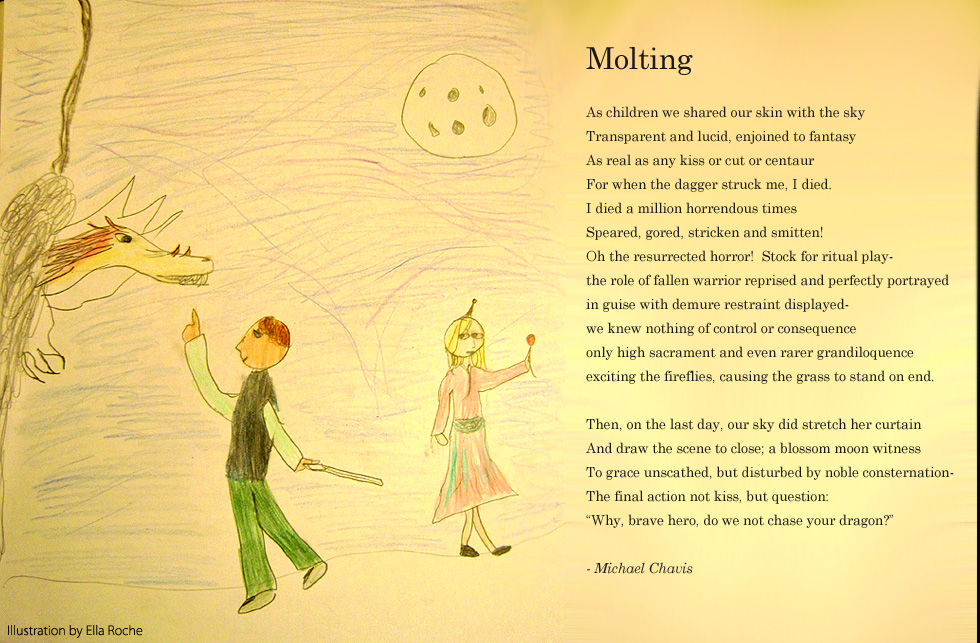 Molting
As children we shared our skin with the sky
Transparent and lucid, enjoined to fantasy
As real as any kiss or cut or centaur
For when the dagger struck me, I died.
I died a million horrendous times
Speared, gored, stricken and smitten!
Oh the resurrected horror!  Stock for ritual play-
the role of fallen warrior reprised and perfectly portrayed
in guise with demure restraint displayed-
we knew nothing of control or consequence
only high sacrament and even rarer grandiloquence
exciting the fireflies, causing the grass to stand on end.
Then, on the last day, our sky did stretch her curtain
And draw the scene to close; a blossom moon witness
To grace unscathed, but disturbed by noble consternation-
The final action not kiss, but question:
“Why, brave hero, do we not chase your dragon?”
- Michael Chavis
Illustration by Ella Roche